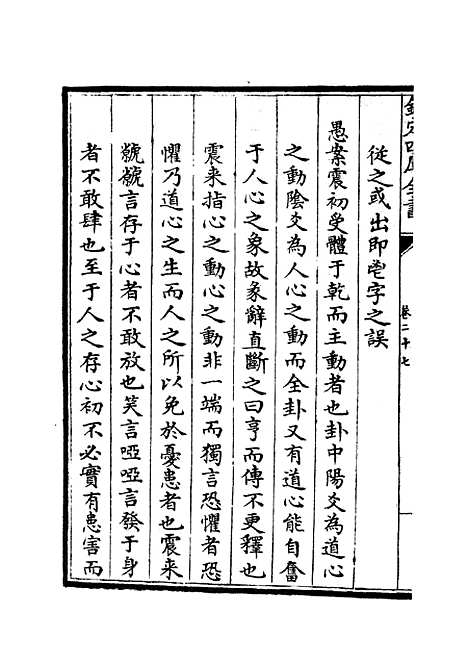 欽定四庫全書
卷二十七
從之或出即鬯字之誤
愚案震初受體于乾而主動者也卦中陽爻為道心
之動陰爻為人心之動而全卦又有道心能自奮
于人心之象故彖辭直斷之曰亨而傳不更釋也
震来指心之動心之動非一端而獨言恐懼者恐
懼乃道心之生而人之所以免於憂患者也震来
虩虩言存于心者不敢放也笑言啞啞言發于身
者不敢肆也至于人之存心初不必實有患害而